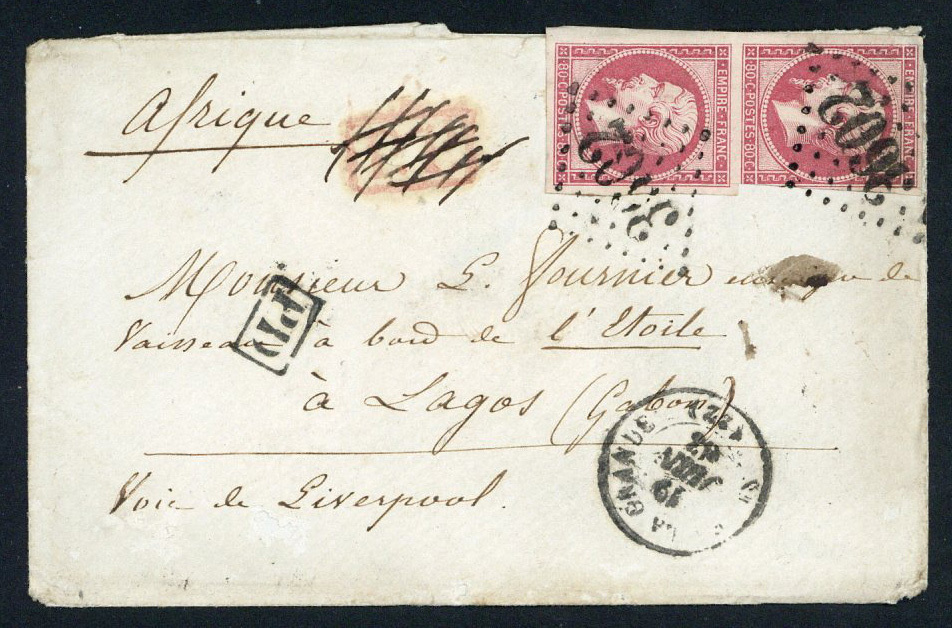 Afrique
EMPIRE FRANC.
80·C·POSTES·80·C
EMPIRE FRANC.
80·C·POSTES·80·C
2602
Monsieur L. Fournier de
Vaisseau à bord de l'Etoile
à Lagos (Gabon)
Voie de Liverpool.
PD
LA GRANDE
19
JANV.
63
(22)